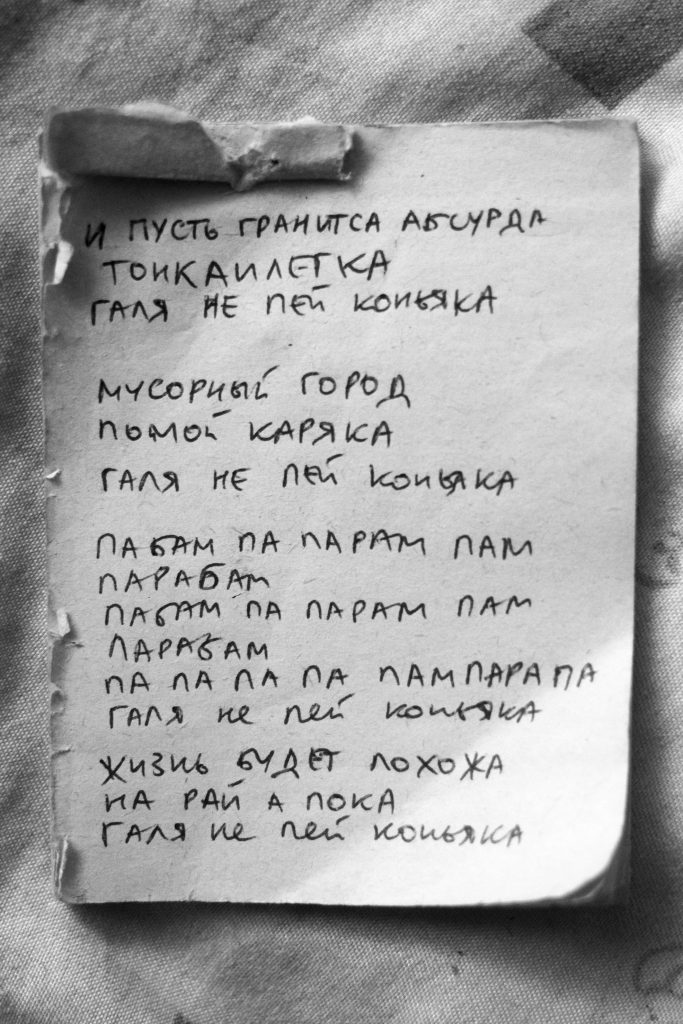 И ПУСТЬ ГРАНИТСА АБСУРДА
ТОНКАИЛЕГКА
ГАЛЯ НЕ ПЕЙ КОНЬЯКА
МУСОРНЫЙ ГОРОД
ПОМОЙ КАРЯКА
ГАЛЯ НЕ ПЕЙ КОНЬЯКА
ПАБАМ ПА ПАРАМ ПАМ
ПАРАБАМ
ПАБАМ ПА ПАРАМ ПАМ
ПАРАБАМ
ПА ПА ПА ПА ПАМПАРАПА
ГАЛЯ не пей коньяка
ЖИЗНЬ БУДЕТ ПОХОЖА
НА РАЙ А ПОКА
ГАЛЯ не пей коньяка